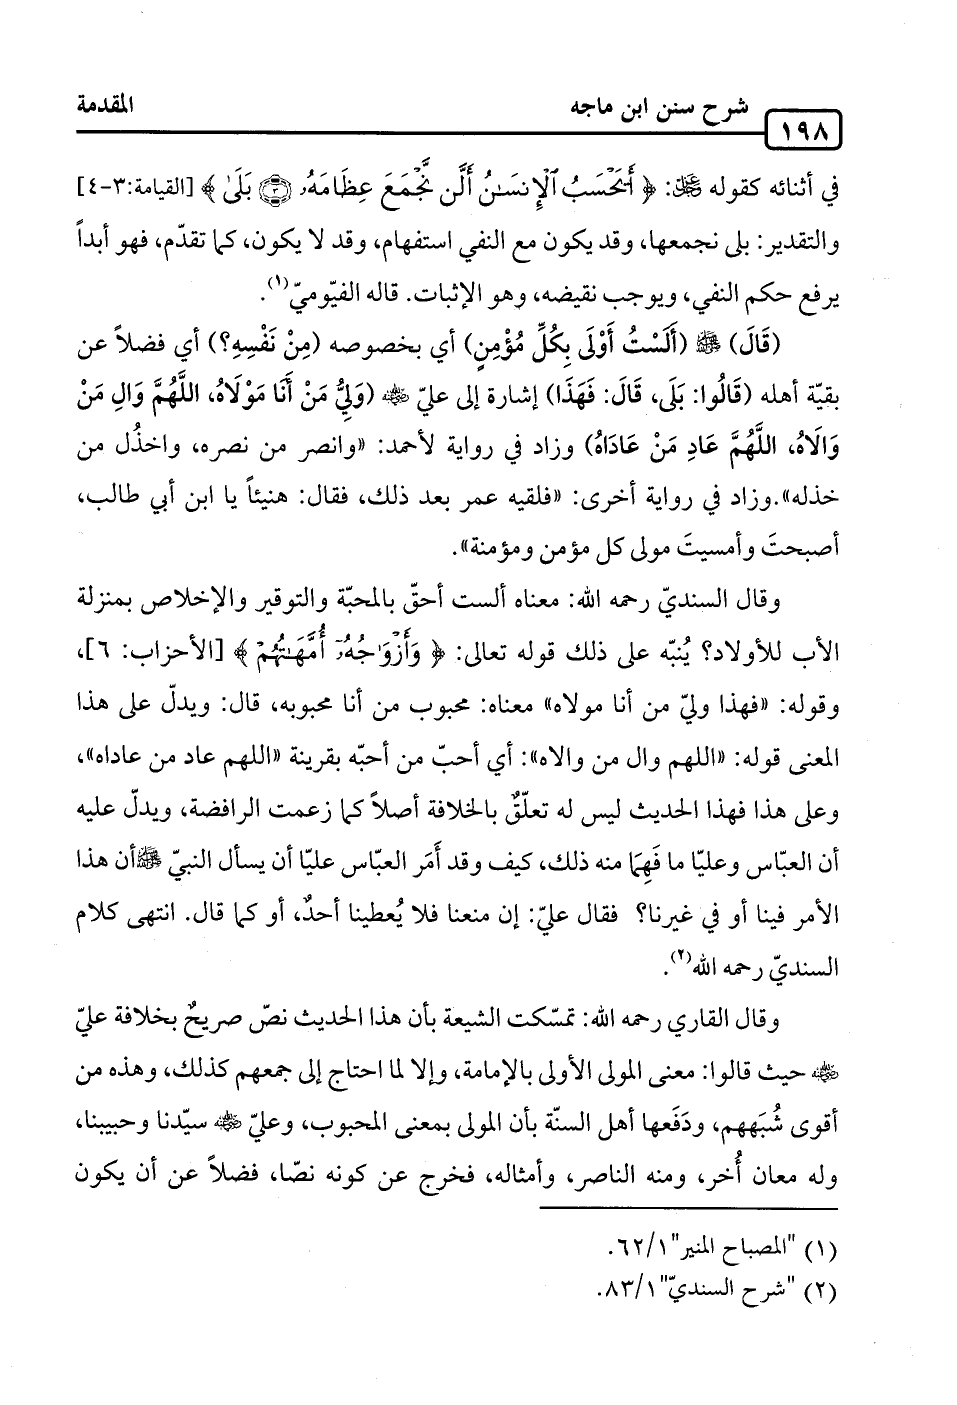 شرح سنن ابن ماجه
المقدمة
١٩٨
في أثنائه كقوله ﷻ: ﴿ أَيَحْسَبُ ٱلْإِنسَـٰنُ أَلَّن نَّجْمَعَ عِظَامَهُۥ ۝٣ بَلَىٰ ﴾ [القيامة:٣-٤]
والتقدير: بلى نجمعها، وقد يكون مع النفي استفهام، وقد لا يكون، كما تقدّم، فهو أبداً
يرفع حكم النفي، ويوجب نقيضه، وهو الإثبات. قاله الفيّوميّ(١).
(قَالَ) ﷺ (أَلَسْتُ أَوْلَى بِكُلِّ مُؤْمِنٍ) أي بخصوصه (مِنْ نَفْسِهِ؟) أي فضلاً عن
بقيّة أهله (قَالُوا: بَلَى، قَالَ: فَهَذَا) إشارة إلى عليّ ﵁ (وَلِيُّ مَنْ أَنَا مَوْلَاهُ، اللَّهُمَّ وَالِ مَنْ
وَالَاهُ، اللَّهُمَّ عَادِ مَنْ عَادَاهُ) وزاد في رواية لأحمد: «وانصر من نصره، واخذُل من
خذله».وزاد في رواية أخرى: «فلقيه عمر بعد ذلك، فقال: هنيئاً يا ابن أبي طالب،
أصبحتَ وأمسيتَ مولى كل مؤمن ومؤمنة».
وقال السنديّ رحمه الله: معناه ألست أحقّ بالمحبّة والتوقير والإخلاص بمنزلة
الأب للأولاد؟ يُنبّه على ذلك قوله تعالى: ﴿ وَأَزْوَٰجُهُۥٓ أُمَّهَـٰتُهُمْ ﴾ [الأحزاب: ٦]،
وقوله: «فهذا وليّ من أنا مولاه» معناه: محبوب من أنا محبوبه، قال: ويدلّ على هذا
المعنى قوله: «اللهم وال من والاه»: أي أحبّ من أحبّه بقرينة «اللهم عاد من عاداه»،
وعلى هذا فهذا الحديث ليس له تعلّقٌ بالخلافة أصلاً كما زعمت الرافضة، ويدلّ عليه
أن العبّاس وعليّا ما فَهِمَا منه ذلك، كيف وقد أَمَر العبّاس عليّا أن يسأل النبيّ ﷺأن هذا
الأمر فينا أو في غيرنا؟ فقال عليّ: إن منعنا فلا يُعطينا أحدٌ، أو كما قال. انتهى كلام
السنديّ رحمه الله(٢).
وقال القاري رحمه الله: تمسّكت الشيعة بأن هذا الحديث نصّ صريحٌ بخلافة عليّ
﵁ حيث قالوا: معنى المولى الأولى بالإمامة، وإلا لما احتاج إلى جمعهم كذلك، وهذه من
أقوى شُبَههم، ودَفَعها أهل السنّة بأن المولى بمعنى المحبوب، وعليّ ﵁ سيّدنا وحبيبنا،
وله معان أُخر، ومنه الناصر، وأمثاله، فخرج عن كونه نصّا، فضلاً عن أن يكون
(١) "المصباح المنير"٦٢/١.
(٢) "شرح السنديّ"٨٣/١.